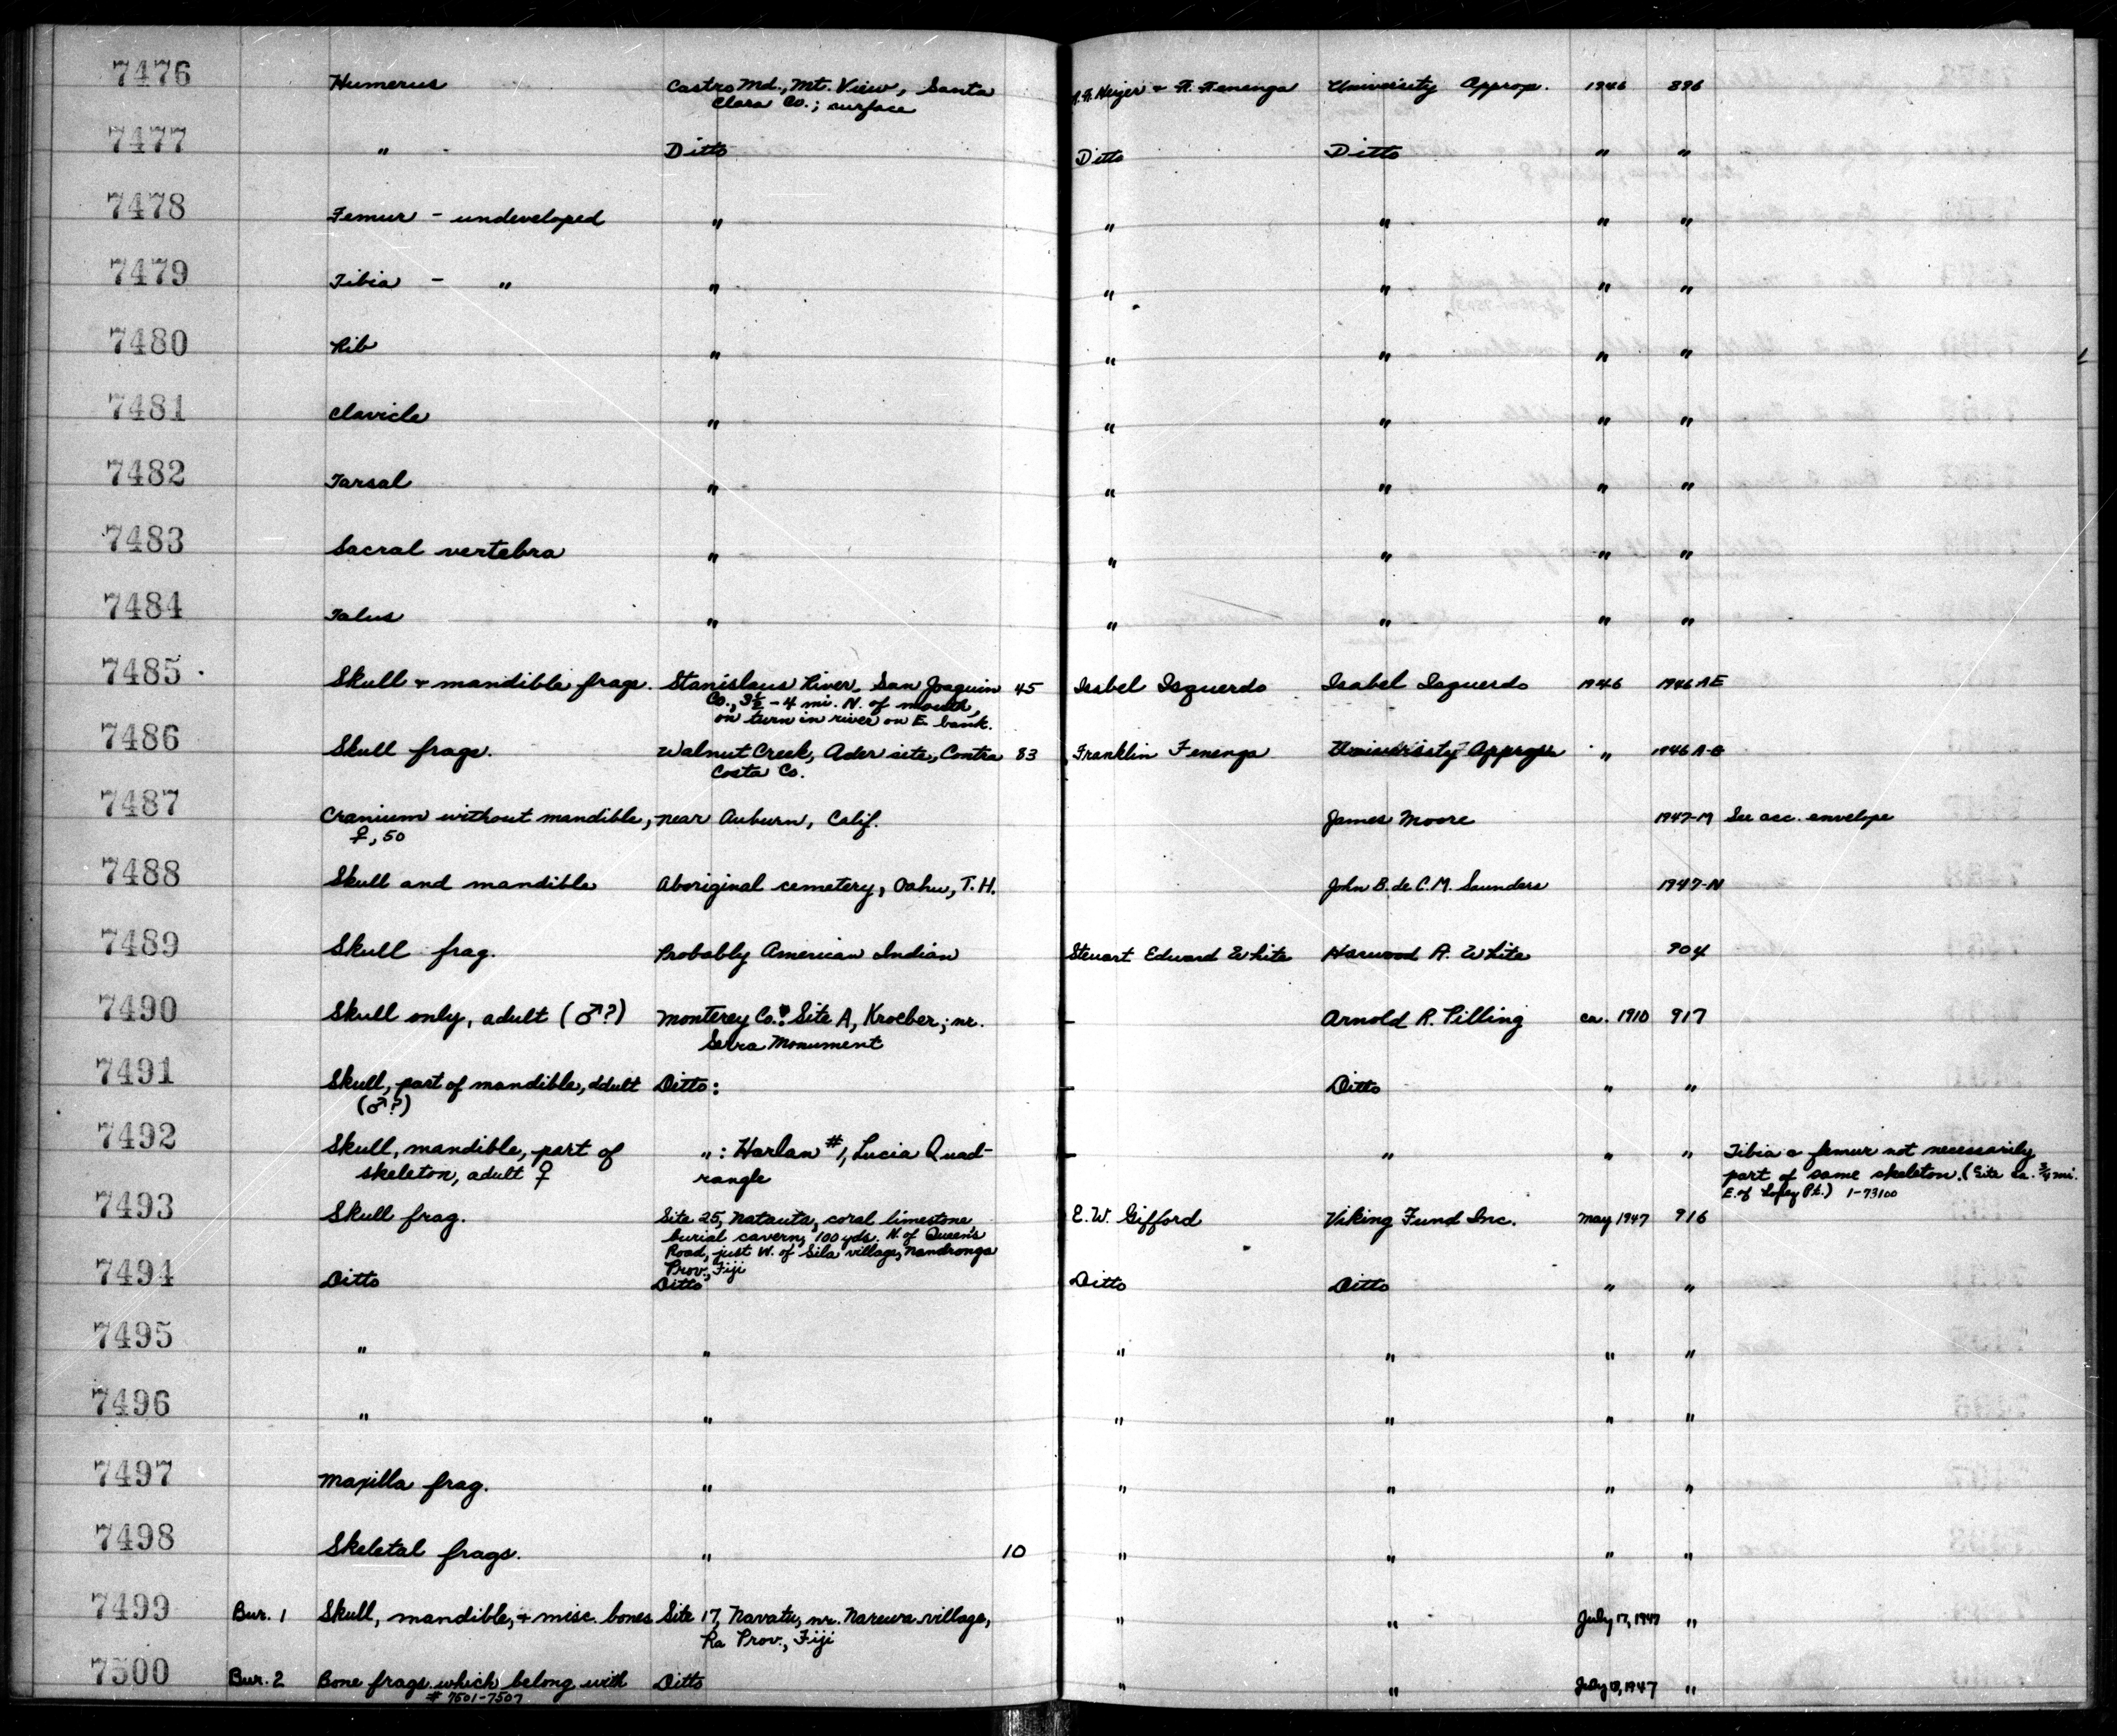 7476 Humerus Castro Md., Mt. View, Santa & F. Fenenga University Approp. 1946 896
Clara Co.; surface
7477 " Ditto Ditto Ditto " "
7478 Femur - undeveloped " " " " "
7479 Tibia - " " " " " "
7480 Rib " " " " "
7481 Clavicle " " " " "
7482 Tarsal " " " " "
7483 Sacral vertebra " " " " "
7484 Talus " " " " "
7485 Skull + mandible frags. Stanislaus River, San Joaquin 45 Isabel Isquerdo Isabel Isquerdo 1946 1946 AE
Co., 3½ - 4 mi. N. of mouth,
on turn in river on E. bank.
7486 Skull frags. Walnut Creek, Ader site, Contra 83 Franklin Fenenga University Approp. " 1946
Costa Co.
7487 Cranium without mandible, near Auburn, Calif. James Moore 1947-M See acc. envelope
♀, 50
7488 Skull and mandible Aboriginal cemetery, Oahu, T.H. John B. de C.M. Saunders 1947-N
7489 Skull frag. Probably American Indian Stewart Edward White Harwood A. White 904
7490 Skull only, adult (♂?) Monterey Co.: Site A, Kroeber; nr. - Arnold R. Pilling ca. 1910 917
Serra Monument
7491 Skull, part of mandible, adult Ditto: - Ditto " "
(♂?)
7492 Skull, mandible, part of ": Harlan #1, Lucia Quad- - " " " Tibia & femur not necessarily
skeleton, adult ♀ rangle part of same skeleton. (Site ca. ¾ mi.
E. of Lopez Pt.) 1-73100
7493 Skull frag. Site 25, Natauta, coral limestone E.W. Gifford Viking Fund Inc. May 1947 916
burial cavern, 100 yds. N. of Queen's
Road, just W. of Sila village, Nandronga
Prov., Fiji
7494 Ditto Ditto Ditto Ditto " "
7495 " " " " " "
7496 " " " " " "
7497 Maxilla frag. " " " " "
7498 Skeletal frags. " 10 " " " "
7499 Bur. 1 Skull, mandible, + misc. bones Site 17, Navatu, nr. Narewa village, " " July 17, 1947 "
Ra Prov., Fiji
7500 Bur. 2 Bone frags which belong with Ditto " " July 1947 "
# 7501-7507